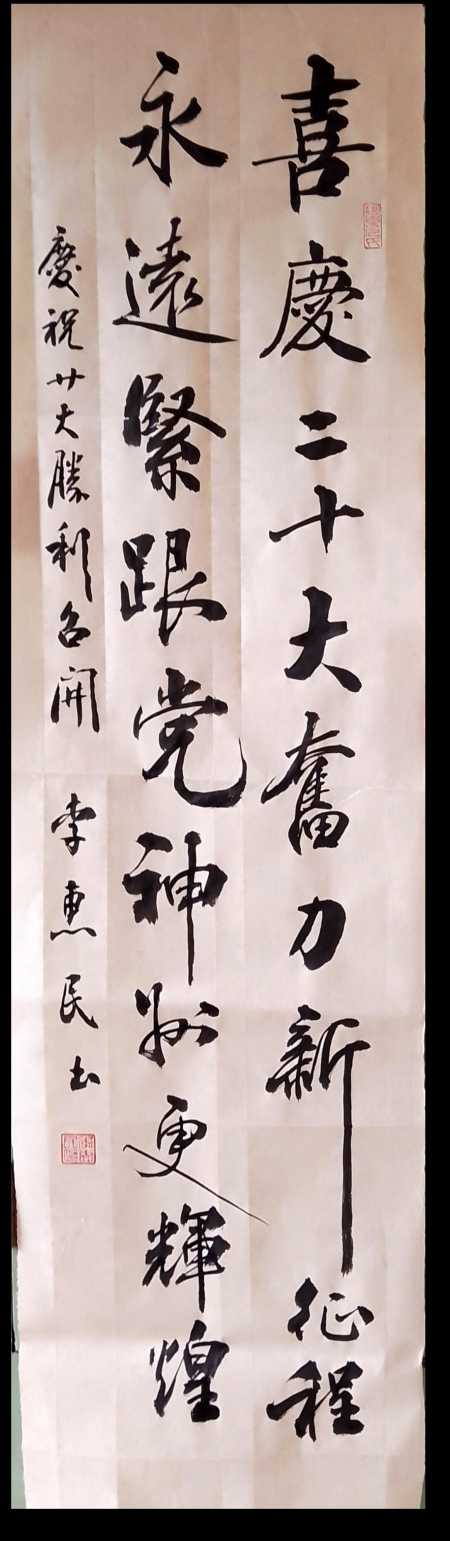 喜慶二十大奮力新征程
永遠緊跟党神州更輝煌
慶祝廿大勝利召開 李惠民书